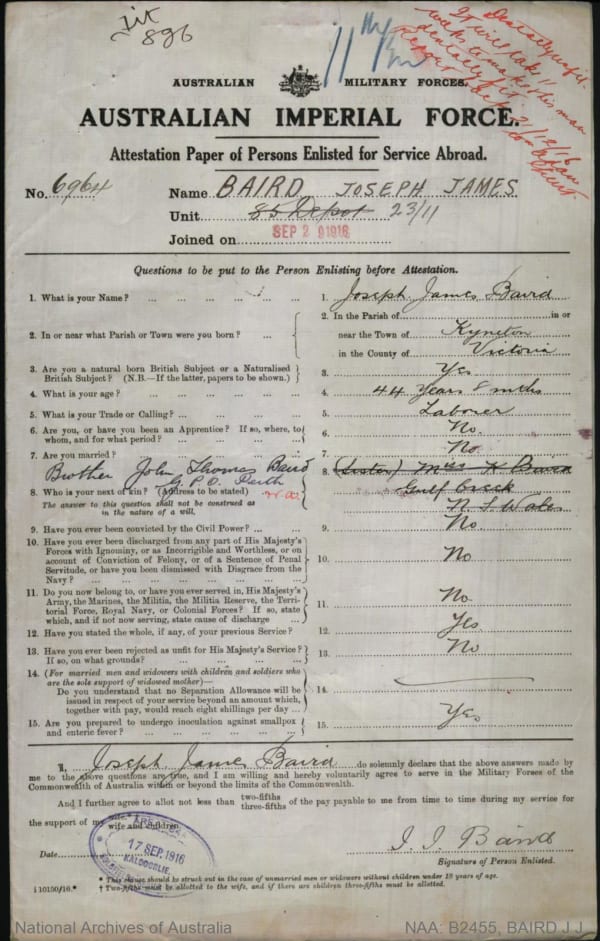 Lit
896
11th
Dentally unfit.
It will take 1½
weeks to make this man
dentally fit
21/9/16
AUSTRALIAN MILITARY FORCES.
AUSTRALIAN IMPERIAL FORCE.
Attestation Paper of Persons Enlisted for Service Abroad.
No. 6964 Name BAIRD JOSEPH JAMES
Unit 85 Depot 23/11
Joined on SEP 2 9 1916
Questions to be put to the Person Enlisting before Attestation.
1. What is your Name? ... ... ... ... 1. Joseph James Baird
2. In or near what Parish or Town were you born? ... 2. In the Parish of in or
near the Town of Kyneton
in the County of Victoria
3. Are you a natural born British Subject or a Naturalised
British Subject? (N.B.—If the latter, papers to be shown.) 3. Yes
4. What is your age? ... ... ... ... 4. 44 Years 8 mths
5. What is your Trade or Calling? ... ... ... ... 5. Laborer
6. Are you, or have you been an Apprentice? If so, where, to
whom, and for what period? ... ... ... 6. No.
7. Are you married? ... ... ... ... 7. No
Brother John Thomas Baird
G.P.O. Perth
W.A.
8. Who is your next of kin? (Address to be stated) 8. (Sister) K Baird
Gulf Creek
N. S. Wales
The answer to this question shall not be construed as
in the nature of a will.
9. Have you ever been convicted by the Civil Power? ... ... 9. No
10. Have you ever been discharged from any part of His Majesty's
Forces with Ignominy, or as Incorrigible and Worthless, or on
account of Conviction of Felony, or of a Sentence of Penal
Servitude, or have you been dismissed with Disgrace from the
Navy? ... ... ... ... ... 10. No
11. Do you now belong to, or have you ever served in, His Majesty's
Army, the Marines, the Militia, the Militia Reserve, the Terri-
torial Force, Royal Navy, or Colonial Forces? If so, state
which, and if not now serving, state cause of discharge ... 11. No
12. Have you stated the whole, if any, of your previous Service? 12. Yes
13. Have you ever been rejected as unfit for His Majesty's Service?
If so, on what grounds? ... ... ... ... 13. No
14. (For married men and widowers with children and soldiers who
are the sole support of widowed mother)—
Do you understand that no Separation Allowance will be
issued in respect of your service beyond an amount which,
together with pay, would reach eight shillings per day ... 14.
15. Are you prepared to undergo inoculation against smallpox
and enteric fever? ... ... ... ... 15. Yes
I, Joseph James Baird do solemnly declare that the above answers made by
me to the above questions are true, and I am willing and hereby voluntarily agree to serve in the Military Forces of the
Commonwealth of Australia within or beyond the limits of the Commonwealth.
And I further agree to allot not less than two-fifths three-fifths of the pay payable to me from time to time during my service for
the support of my wife.* wife and children.
Date 17 SEP. 1916
KALGOORLIE
J. J. Baird
Signature of Person Enlisted.
* This clause should be struck out in the case of unmarried men or widowers without children under 18 years of age.
† Two-fifths must be allotted to the wife, and if there are children three-fifths must be allotted.
‡10150/16.*
National Archives of Australia NAA: B2455, BAIRD J J